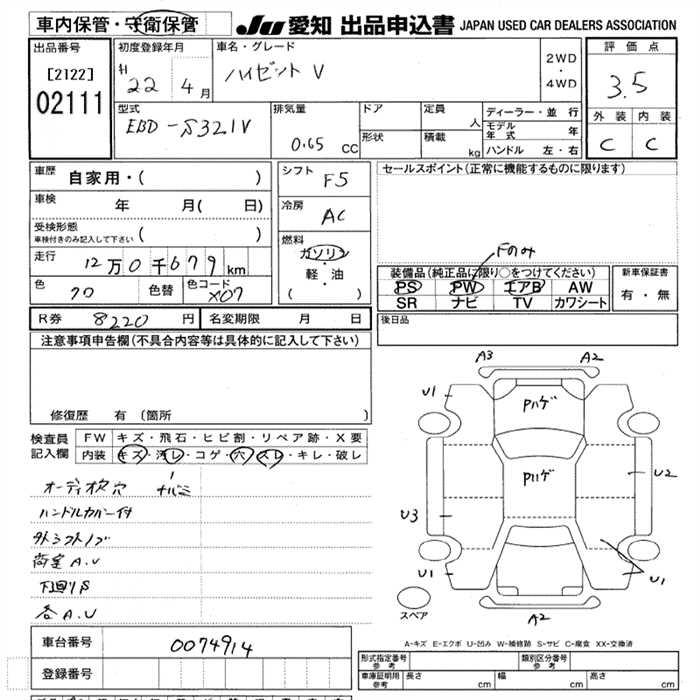 車内保管・守衛保管
JU 愛知 出品申込書 JAPAN USED CAR DEALERS ASSOCIATION
出品番号
[2122]
02111
初度登録年月
H
22 4月
車名・グレード
ハイゼット V
2WD
・
4WD
評価点
3.5
外装 内装
C C
型式
EBD-S321V
排気量
0.65 cc
ドア
形状
定員 人
積載 kg
ディーラー・並行
モデル年式 年
ハンドル 左・右
車歴 自家用・( )
車検 年 月( 日)
受検形態
車検付きのみ記入して下さい ( )
走行 12万0千679km
色 クロ 色替 色コード X07
シフト F5
冷房 AC
燃料
ガソリン
・
軽・油
( )
セールスポイント(正常に機能するものに限ります)
Fのみ
装備品(純正品に限り○をつけてください)
PS PW エアB AW
SR ナビ TV カワシート
新車保証書
有・無
R券 8220円 名変期限 月 日
後日品
注意事項申告欄(不具合内容等は具体的に記入して下さい)
修復歴 有 (箇所 )
検査員記入欄
FW キズ・飛石・ヒビ割・リペア跡・X要
内装 キズ・汚レ・コゲ・穴・スレ・キレ・破レ
オーディオ欠穴
ハンドルカバー付
外シフトノブ
荷室 A.U
下回りS
各A.U
A3 A2
U1
Pハゲ
Pハゲ
U2
U3
U1
U1
A2
スペア
A-キズ E-エクボ U-凹み W-補修跡 S-サビ C-腐食 XX-交換済
車台番号 0074914
登録番号
形式指定番号 参考
類別区分番号 参考
車庫証明用 参考 長さ cm 幅 cm 高さ cm